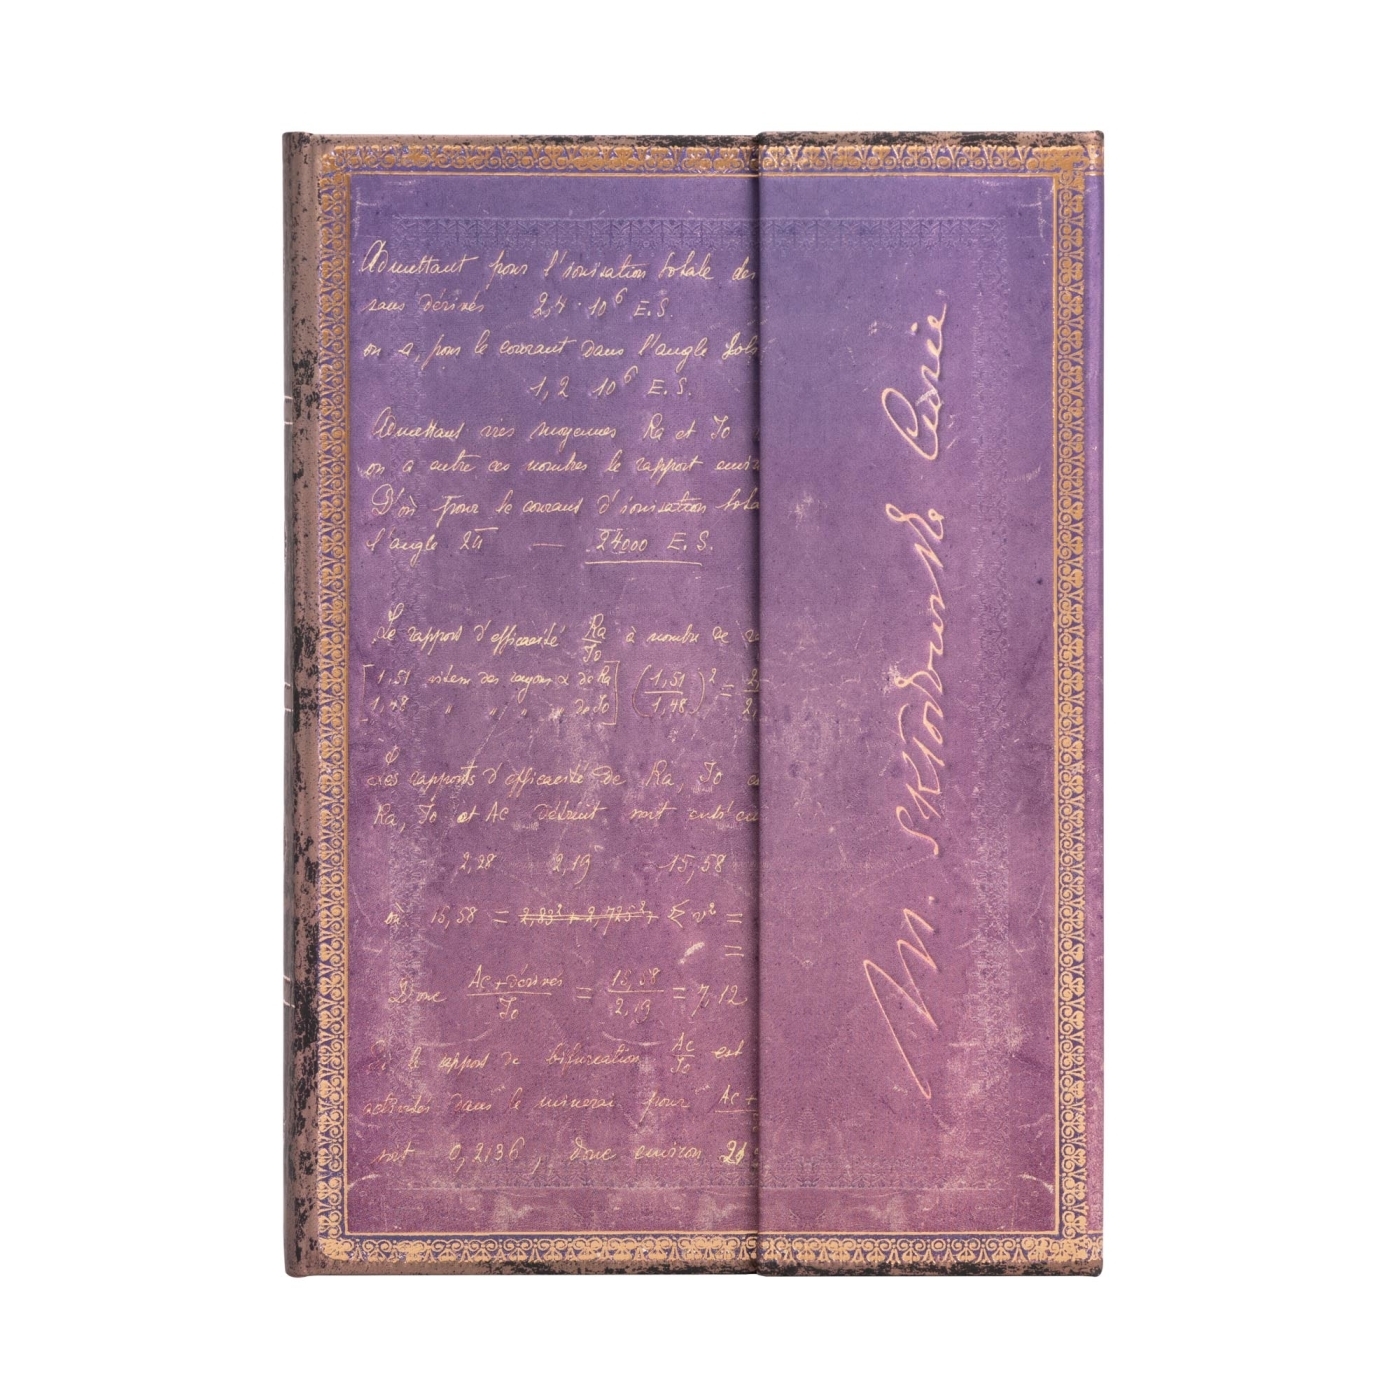 Admettant pour l'ionisation totale des
sans dérivés 2,4 · 10⁶ E.S.
on a, pour le courant dans l'angle
1,2 10⁶ E.S.
Admettant moyennes Ra et Io
on a entre ces nombres le rapport
D'où pour le courant d'ionisation
l'angle 2π — 24000 E.S.
Le rapport d'efficacité Ra/Io à nombre de
[1,51 vitesse des rayons α de Ra] (1,51/1,48)² =
1,48 " " " " de Io]
Les rapports d'efficacité de Ra, Io
Ra, Io et Ac détruit sont
2,28 2,19 15,58
où 15,58 = 2,83² + 2,725² + Σv² =
=
Donc Ac+dérivés/Io = 15,58/2,19 = 7,12
Si le rapport de bifurcation Ac/Io est
activités dans le minerai pour Ac +
soit 0,2136, donc environ
M. Skłodowska Curie